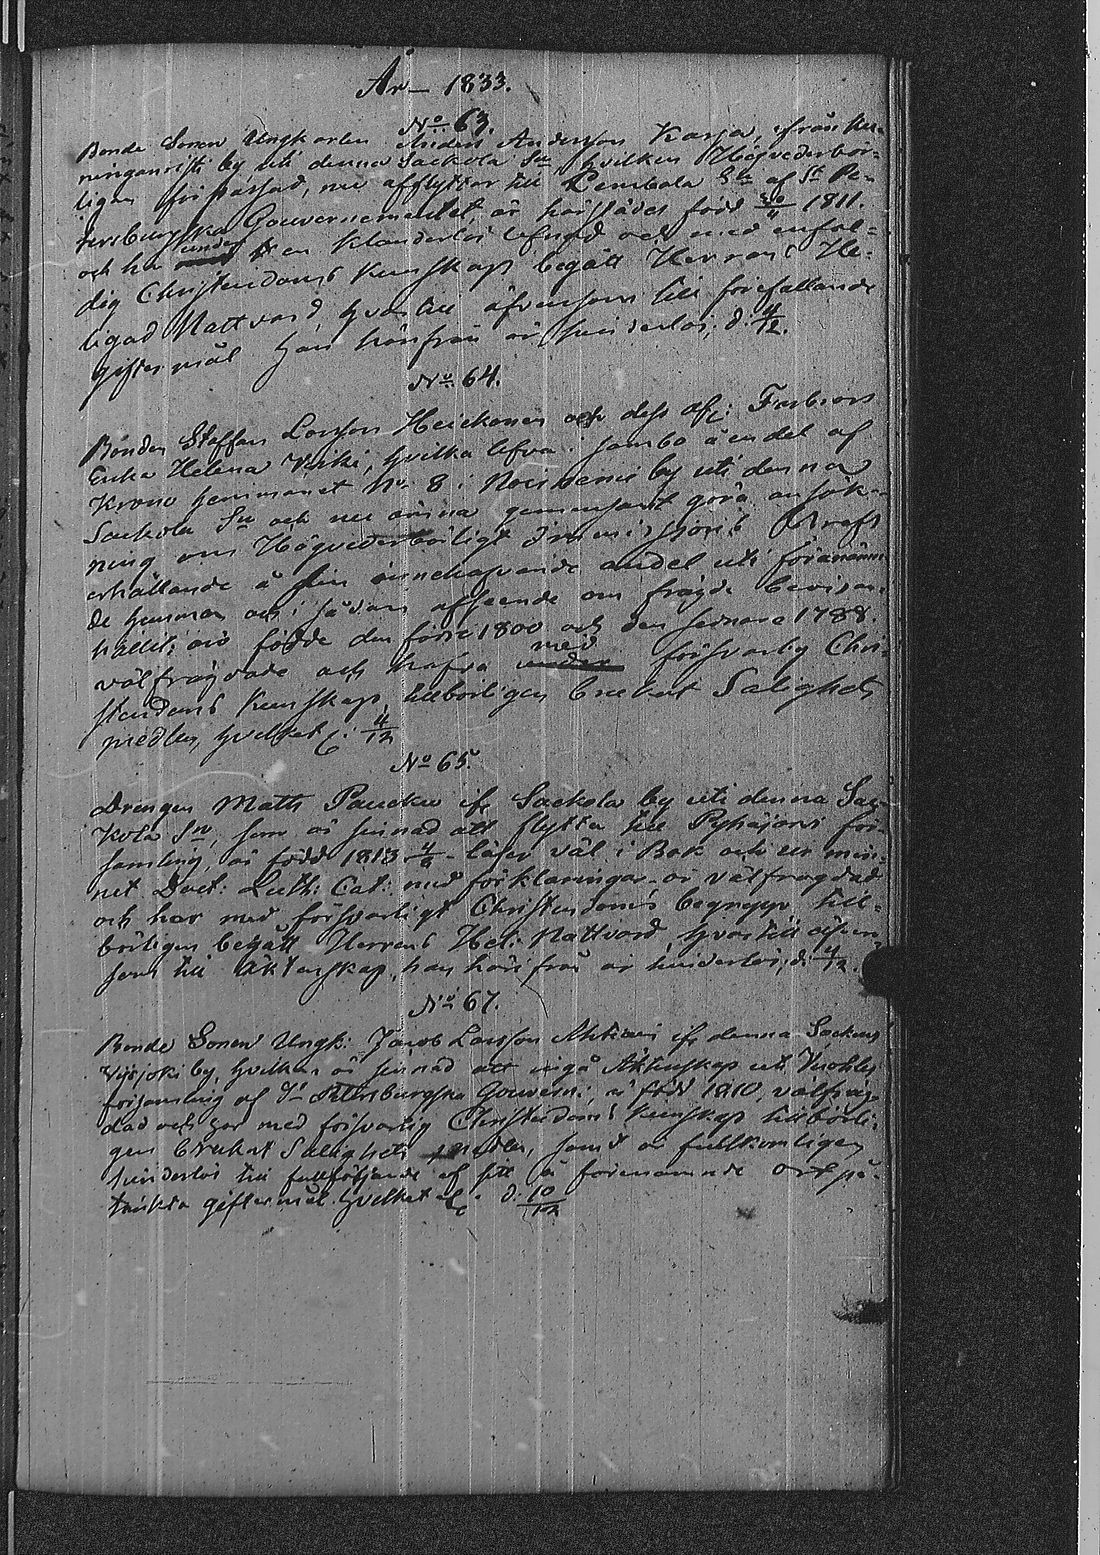 År — 1833.
No 63.
Bonde Sonen Ungkarlen Anders Andersson Karja, ifrån
by uti denna Sackola Sn hvilken Högvederbör-
ligen förpassad, nu afflyttar till Lembala Sn af St Pe-
tersburgska Gouvernementet, är härstädes född 30/11 1811.
och har under en klanderlös lefnad och med enfal-
dig Christendoms Kunskap begått Herrans He-
liga Nattvard, hvartill äfvensom till förefallande
giftermål han härifrån är hinderlös; d. 4/12.
No 64.
Bonden Staffan Larsson Heickonen och dess
Enka Helena Kirki, hvilka lefva i sambo å en del af
Krono hemmanet No. 8 i by uti denna
Sackola Sn och nu ärna gemensamt göra ansök-
ning om Högvederbörligt Dimissions
erhållande å sin innehafvande andel uti förenämn-
de hemman och i sådan afseende om frägde bevis
hållit; äro födde den förre 1800 och den sednare 1788.
välfrägdade och hafva med försvarlig Chri-
stendoms Kunskap, tillbörligen brukat Salighets
medlen, hvilket 4/12
No 65.
Drengen Matts Paucku if. Sackola by uti denna Sac-
kola Sn, som är sinnad att flytta till Pyhäjärvi för-
samling, är född 1813 4/8 - läser väl i Bok och ur min-
net Doct: Luth: Cat: med förklaringar - är välfrägdad
och har med försvarligt Christendoms begrepp till-
börligen begått Herrans Hel: Nattvard, hvartill äfven
som till Äktenskap, han härifrån är hinderlös; d. 4/12.
No 67.
Bonde Sonen Ungk: Jacob Larsson if. denna Sockens
by, hvilken är sinnad att ingå Äktenskap uti
församling af St Petersburgska Gouvern:, är född 1810, välfräg-
dad och har med försvarlig Christendoms Kunskap tillbörli-
gen brukat Salighets medlen, samt är fullkomligen
hinderlös till fullföljande af sitt å förenämnde ort på-
tänkta giftermål. hvilket etc. d. 10/12